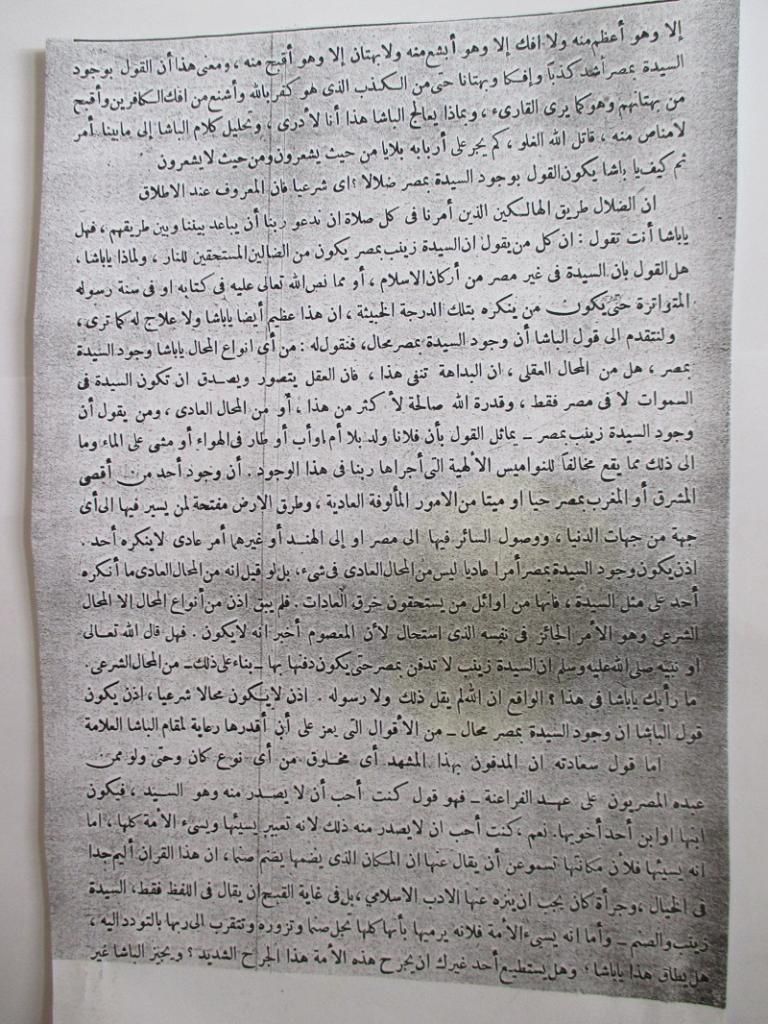 إلا وهو أعظم منه ولا افك إلا وهو أبشع منه ولا بهتان إلا وهو أقبح منه ، ومعنى هذا أن القول بوجود
السيدة بمصر أشد كذبا وإفكا وبهتانا حتى من الكذب الذى هو كفر بالله وأشنع من افك الكافرين وأقبح
من بهتانهم وهو كما يرى القارىء ، وبماذا يعالج الباشا هذا أنا لا أدرى ، وتحليل كلام الباشا إلى ما بينا أمر
لا مناص منه ، قاتل الله الغلو ، كم يجر على أربابه بلايا من حيث يشعرون ومن حيث لا يشعرون
ثم كيف يا باشا يكون القول بوجود السيدة بمصر ضلالا ؟ اى شرعيا فان المعروف عند الاطلاق
ان الضلال طريق الهالكين الذين أمرنا فى كل صلاة ان ندعو ربنا أن يباعد بيننا وبين طريقهم ، فهل
يا باشا أنت تقول : ان كل من يقول ان السيدة زينب بمصر يكون من الضالين المستحقين للنار ، ولماذا يا باشا ،
هل القول بان السيدة فى غير مصر من أركان الاسلام ، أو مما نص الله تعالى عليه فى كتابه او فى سنة رسوله
المتواترة حتى يكون من ينكره بتلك الدرجة الخبيثة ، ان هذا عظيم أيضا يا باشا ولا علاج له كما ترى ،
ولنتقدم الى قول الباشا أن وجود السيدة بمصر محال، فنقول له : من أى انواع المحال يا باشا وجود السيدة
بمصر ، هل من المحال العقلى ، ان البداهة تنفى هذا ، فان العقل يتصور ويصدق ان تكون السيدة فى
السموات لا فى مصر فقط ، وقدرة الله صالحة لأكثر من هذا ، أو من المحال العادى ، ومن يقول أن
وجود السيدة زينب بمصر ــ يماثل القول بأن فلانا ولد بلا أم او أب أو طار فى الهواء أو مشى على الماء وما
الى ذلك مما يقع مخالفا للنواميس الألهية التى أجراها ربنا فى هذا الوجود . أن وجود أحد من أقصى
المشرق أو المغرب بمصر حيا او ميتا من الامور المألوفة العادية ، وطرق الارض مفتحة لمن يسير فيها الى أى
جهة من جهات الدنيا ، ووصول السائر فيها الى مصر او إلى الهند أو غيرهما أمر عادى لا ينكره أحد .
اذن يكون وجود السيدة بمصر أمرا عاديا ليس من المحال العادى فى شىء ، بل لو قيل انه من المحال العادى ما أنكره
أحد على مثل السيدة ، فانها من اوائل من يستحقون خرق العادات . فلم يبق اذن من أنواع المحال الا المحال
الشرعى وهو الأمر الجائز فى نفسه الذى استحال لأن المعصوم أخبر انه لا يكون . فهل قال الله تعالى
او نبيه صلى الله عليه وسلم ان السيدة زينب لا تدفن بمصر حتى يكون دفنها بها ــ بناء على ذلك ــ من المحال الشرعى.
ما رأيك يا باشا فى هذا ؟ الواقع ان الله لم يقل ذلك ولا رسوله . اذن لا يكون محالا شرعيا ، اذن يكون
قول الباشا ان وجود السيدة بمصر محال ــ من الأقوال التى يعز على أن أقدرها رعاية لمقام الباشا العلامة
اما قول سعادته ان المدفون بهذا المشهد أى مخلوق من أى نوع كان وحتى ولو ممن
عبده المصريون على عهد الفراعنة ــ فهو قول كنت أحب أن لا يصدر منه وهو السيد ، فيكون
ابنها او ابن أحد أخويها. نعم ، كنت أحب ان لا يصدر منه ذلك لانه تعبير يسيئها ويسىء الأمة كلها ، اما
انه يسيئها فلأن مكانتها تسمو عن أن يقال عنها ان المكان الذى يضمها يضم صنما ، ان هذا القران أليم جدا
فى الخيال ، وجرأة كان يجب ان ينزه عنها الادب الاسلامي ، بل فى غاية القبح ان يقال فى اللفظ فقط، السيدة
زينب والصنم ــ وأما انه يسىء الأمة فلانه يرميها بأنها كلها تجل صنما وتزوره وتتقرب الى ربها بالتودد اليه ،
هل يطاق هذا يا باشا ؟ وهل يستطيع أحد غيرك ان يجرح هذه الأمة هذا الجرح الشديد ؟ ويجيز الباشا غير